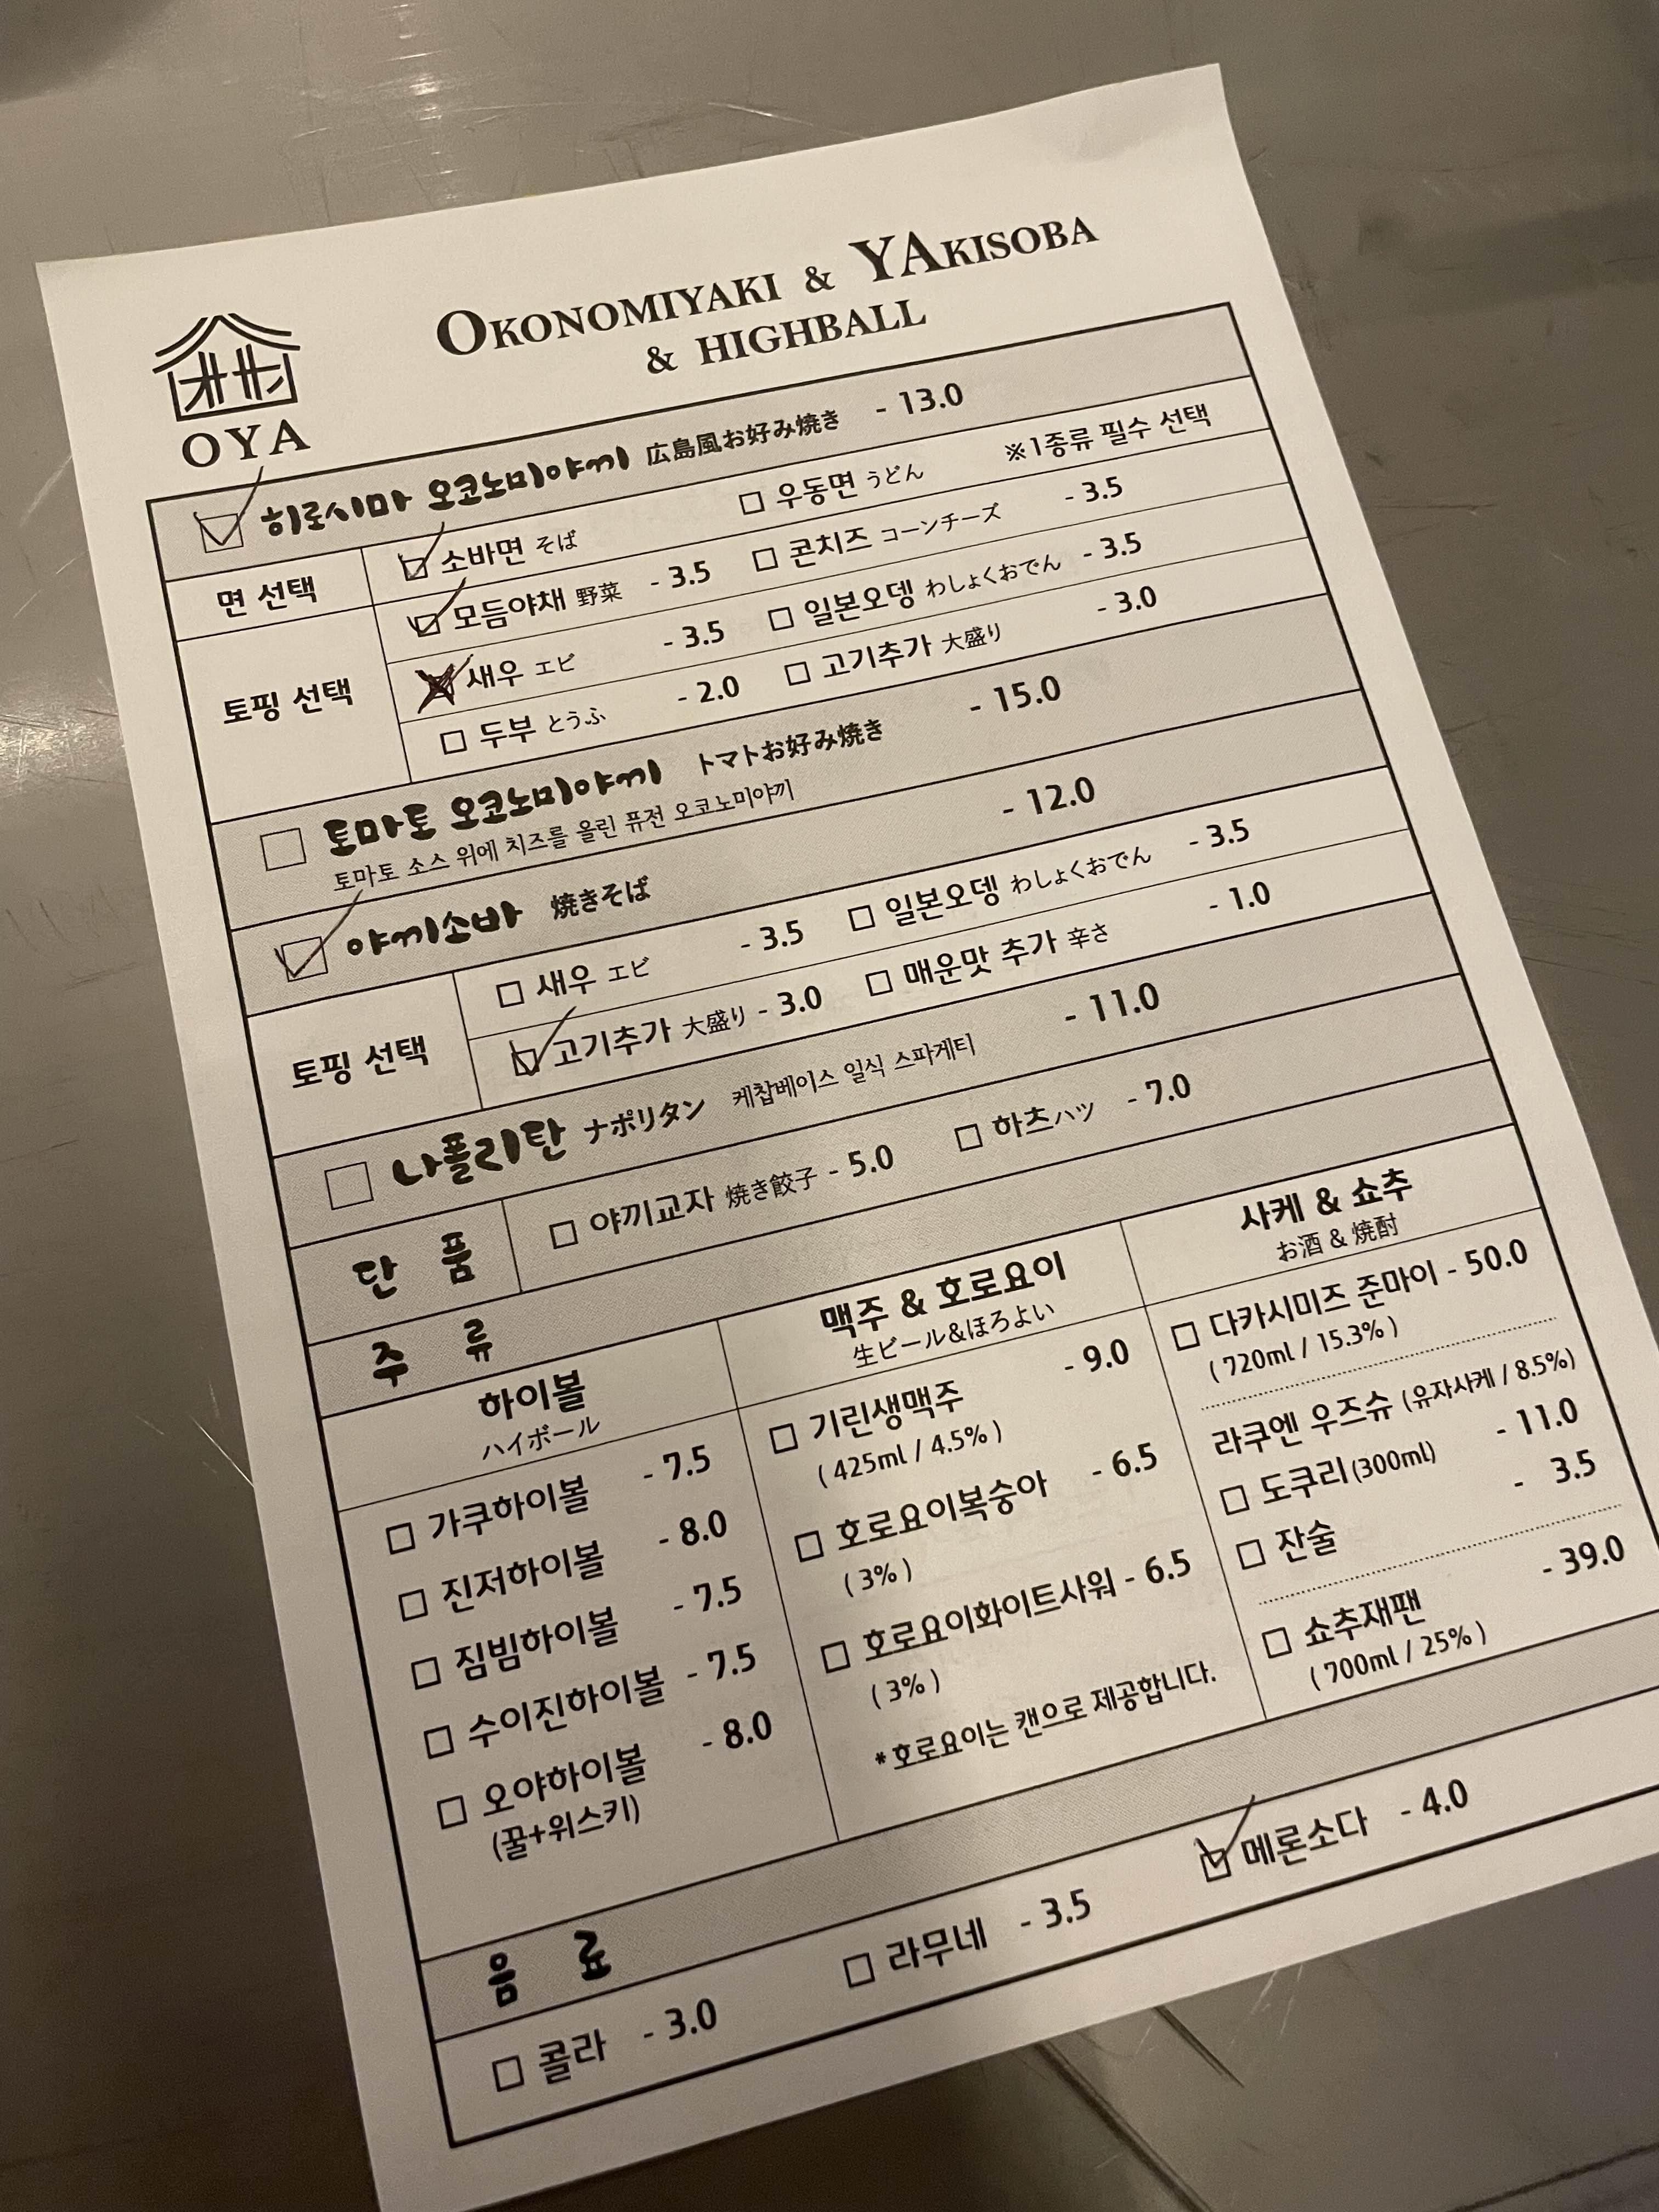 OYA
OKONOMIYAKI & YAKISOBA
& HIGHBALL
히로시마 오코노미야끼 広島風お好み焼き - 13.0
면 선택
소바면 そば
우동면 うどん
※1종류 필수 선택
토핑 선택
모듬야채 野菜 - 3.5
콘치즈 コーンチーズ - 3.5
새우 エビ - 3.5
일본오뎅 わしょくおでん - 3.5
두부 とうふ - 2.0
고기추가 大盛り - 3.0
토마토 오코노미야끼 トマトお好み焼き - 15.0
토마토 소스 위에 치즈를 올린 퓨전 오코노미야끼
야끼소바 焼きそば - 12.0
토핑 선택
새우 エビ - 3.5
일본오뎅 わしょくおでん - 3.5
고기추가 大盛り - 3.0
매운맛 추가 辛さ - 1.0
나폴리탄 ナポリタン 케찹베이스 일식 스파게티 - 11.0
단 품
야끼교자 焼き餃子 - 5.0
하츠 ハツ - 7.0
주 류
하이볼
ハイボール
가쿠하이볼 - 7.5
진저하이볼 - 8.0
짐빔하이볼 - 7.5
수이진하이볼 - 7.5
오야하이볼 - 8.0
(꿀+위스키)
맥주 & 호로요이
生ビール&ほろよい
기린생맥주 - 9.0
( 425ml / 4.5% )
호로요이복숭아 - 6.5
( 3% )
호로요이화이트사워 - 6.5
( 3% )
*호로요이는 캔으로 제공합니다.
사케 & 쇼추
お酒 & 焼酎
다카시미즈 준마이 - 50.0
( 720ml / 15.3% )
라쿠엔 우즈슈 (유자사케 / 8.5%)
도쿠리(300ml) - 11.0
잔술 - 3.5
쇼추재팬 - 39.0
( 700ml / 25% )
음 료
콜라 - 3.0
라무네 - 3.5
메론소다 - 4.0